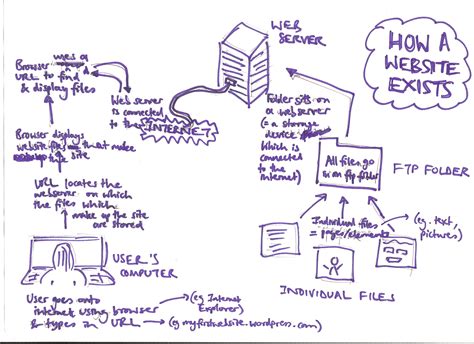 HOW A
WEBSITE
EXISTS
WEB
SERVER
Browser uses a
URL to find
& display files
Web server
is connected
to the
INTERNET
Folder sits on
a webserver
(= a storage
device
which is
connected
to the
internet)
All files go
in an ftp folder
FTP FOLDER
Browser displays
website files that make
up the site
URL locates the
webserver on which
the files which
make up the site
are stored
Individual files
= pages/elements
(eg. text,
pictures)
USER'S
COMPUTER
INDIVIDUAL FILES
User goes onto
internet using browser
& types in URL
(eg Internet
Explorer)
(eg myfirstwebsite.wordpress.com)